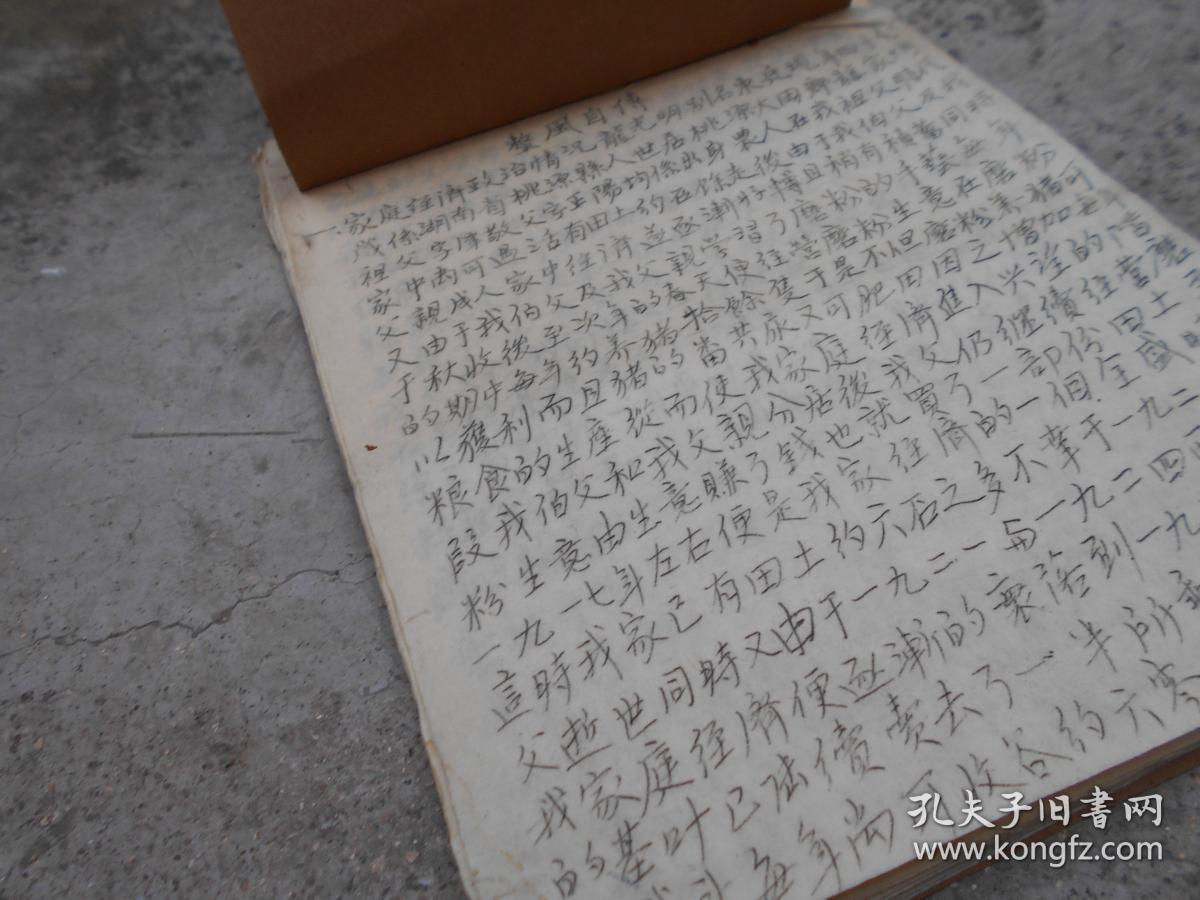 整風自傳
一、家庭經濟政治情況龍光明別名東兵現年四十
歲係湖南省桃源縣人世居桃源大田鄉祖家
祖父字厚敬父字玉陽均係出身農人在我祖父時代
家中尚可過活有田土約石餘走後由于我伯父及我
父親成人家中经济遂逐漸好摶且稍有積蓄同時
又由于我伯父及我父親学習了磨粉的手藝每年
于秋收後至次年的春天便经营磨粉生意在磨粉
的期中每年约养猪拾餘隻于是不但磨粉养猪可
以獲利而且猪的粪共尿又可肥田因之增加每年
粮食的生產從而使我家庭经济進入兴旺的階
段我伯父和我父親分居後我父仍继续经营磨
粉生意由生意賺了錢也就買了一部份田土
一九一七年左右便是我家经济的一個全盛時
這時我家已有田土约六石之多不幸于一九二
父逝世同時又由于一九二一与一九二四四
我家庭经濟便逐漸的衰落到一九
的基叶已陆續賣去了一半所
每年尚可收谷约六
孔夫子旧书网
www.kongfz.com